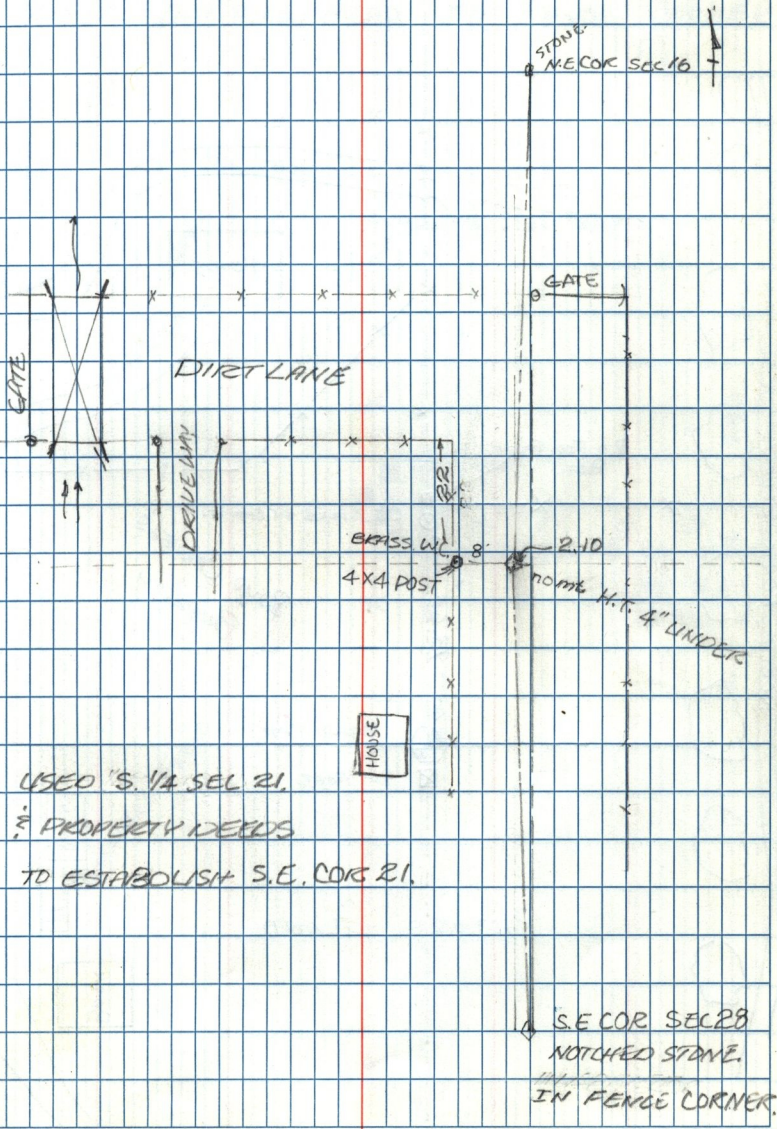 STONE.
N.E COR SEC 16
GATE
GATE
DIRT LANE
DRIVEWAY
22
BRASS W.C.
8'
2.10
4X4 POST
H.T. 4" UNDER
HOUSE
USED S. 1/4 SEC 21.
& PROPERTY DEEDS
TO ESTABOLISH S.E. COR 21.
S.E COR SEC 28
NOTCHED STONE.
IN FENCE CORNER.